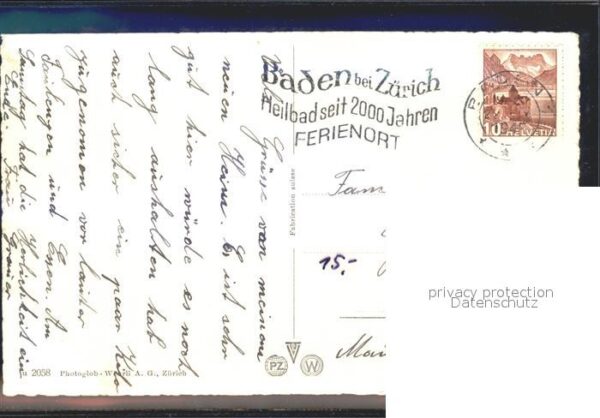 Viele Grüsse von meinem
neuen Heim. Es ist sehr
gut hier würde es noch
lang aushalten hat
auch sicher ein paar Kilo
zugenommen vor lauter
Faulenzen und Essen. Am
Samstag hat die Herrlichkeit ein
Ende. Frau
Baden bei Zürich
Heilbad seit 2000 Jahren
FERIENORT
BADEN
10 HELVETIA
Fabrication suisse
Fam
15.-
Mai
2058 Photoglob-Wehrli A. G., Zürich
PZ
W
privacy protection
Datenschutz